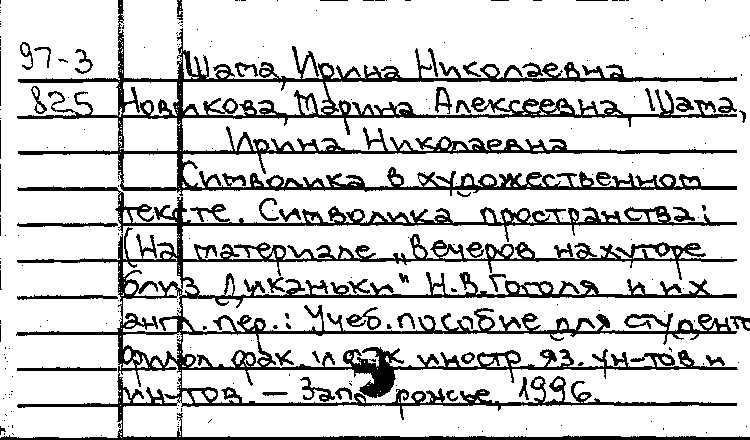 97-3 Шама, Ирина Николаевна
825 Новикова, Марина Алексеевна, Шама,
Ирина Николаевна
Символика в художественном
тексте. Символика пространства:
(На материале „Вечеров на хуторе
близ Диканьки" Н.В.Гоголя и их
англ. пер.: Учеб. пособие для студенто
филол. фак. и фак. иностр. яз. ун-тов и
ин-тов. — Запо рожье, 1996.